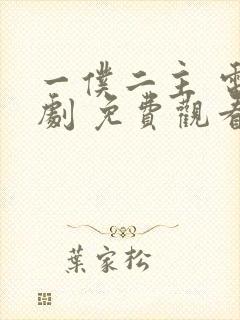 一僕二主 電
劇 免費觀看
葉家松